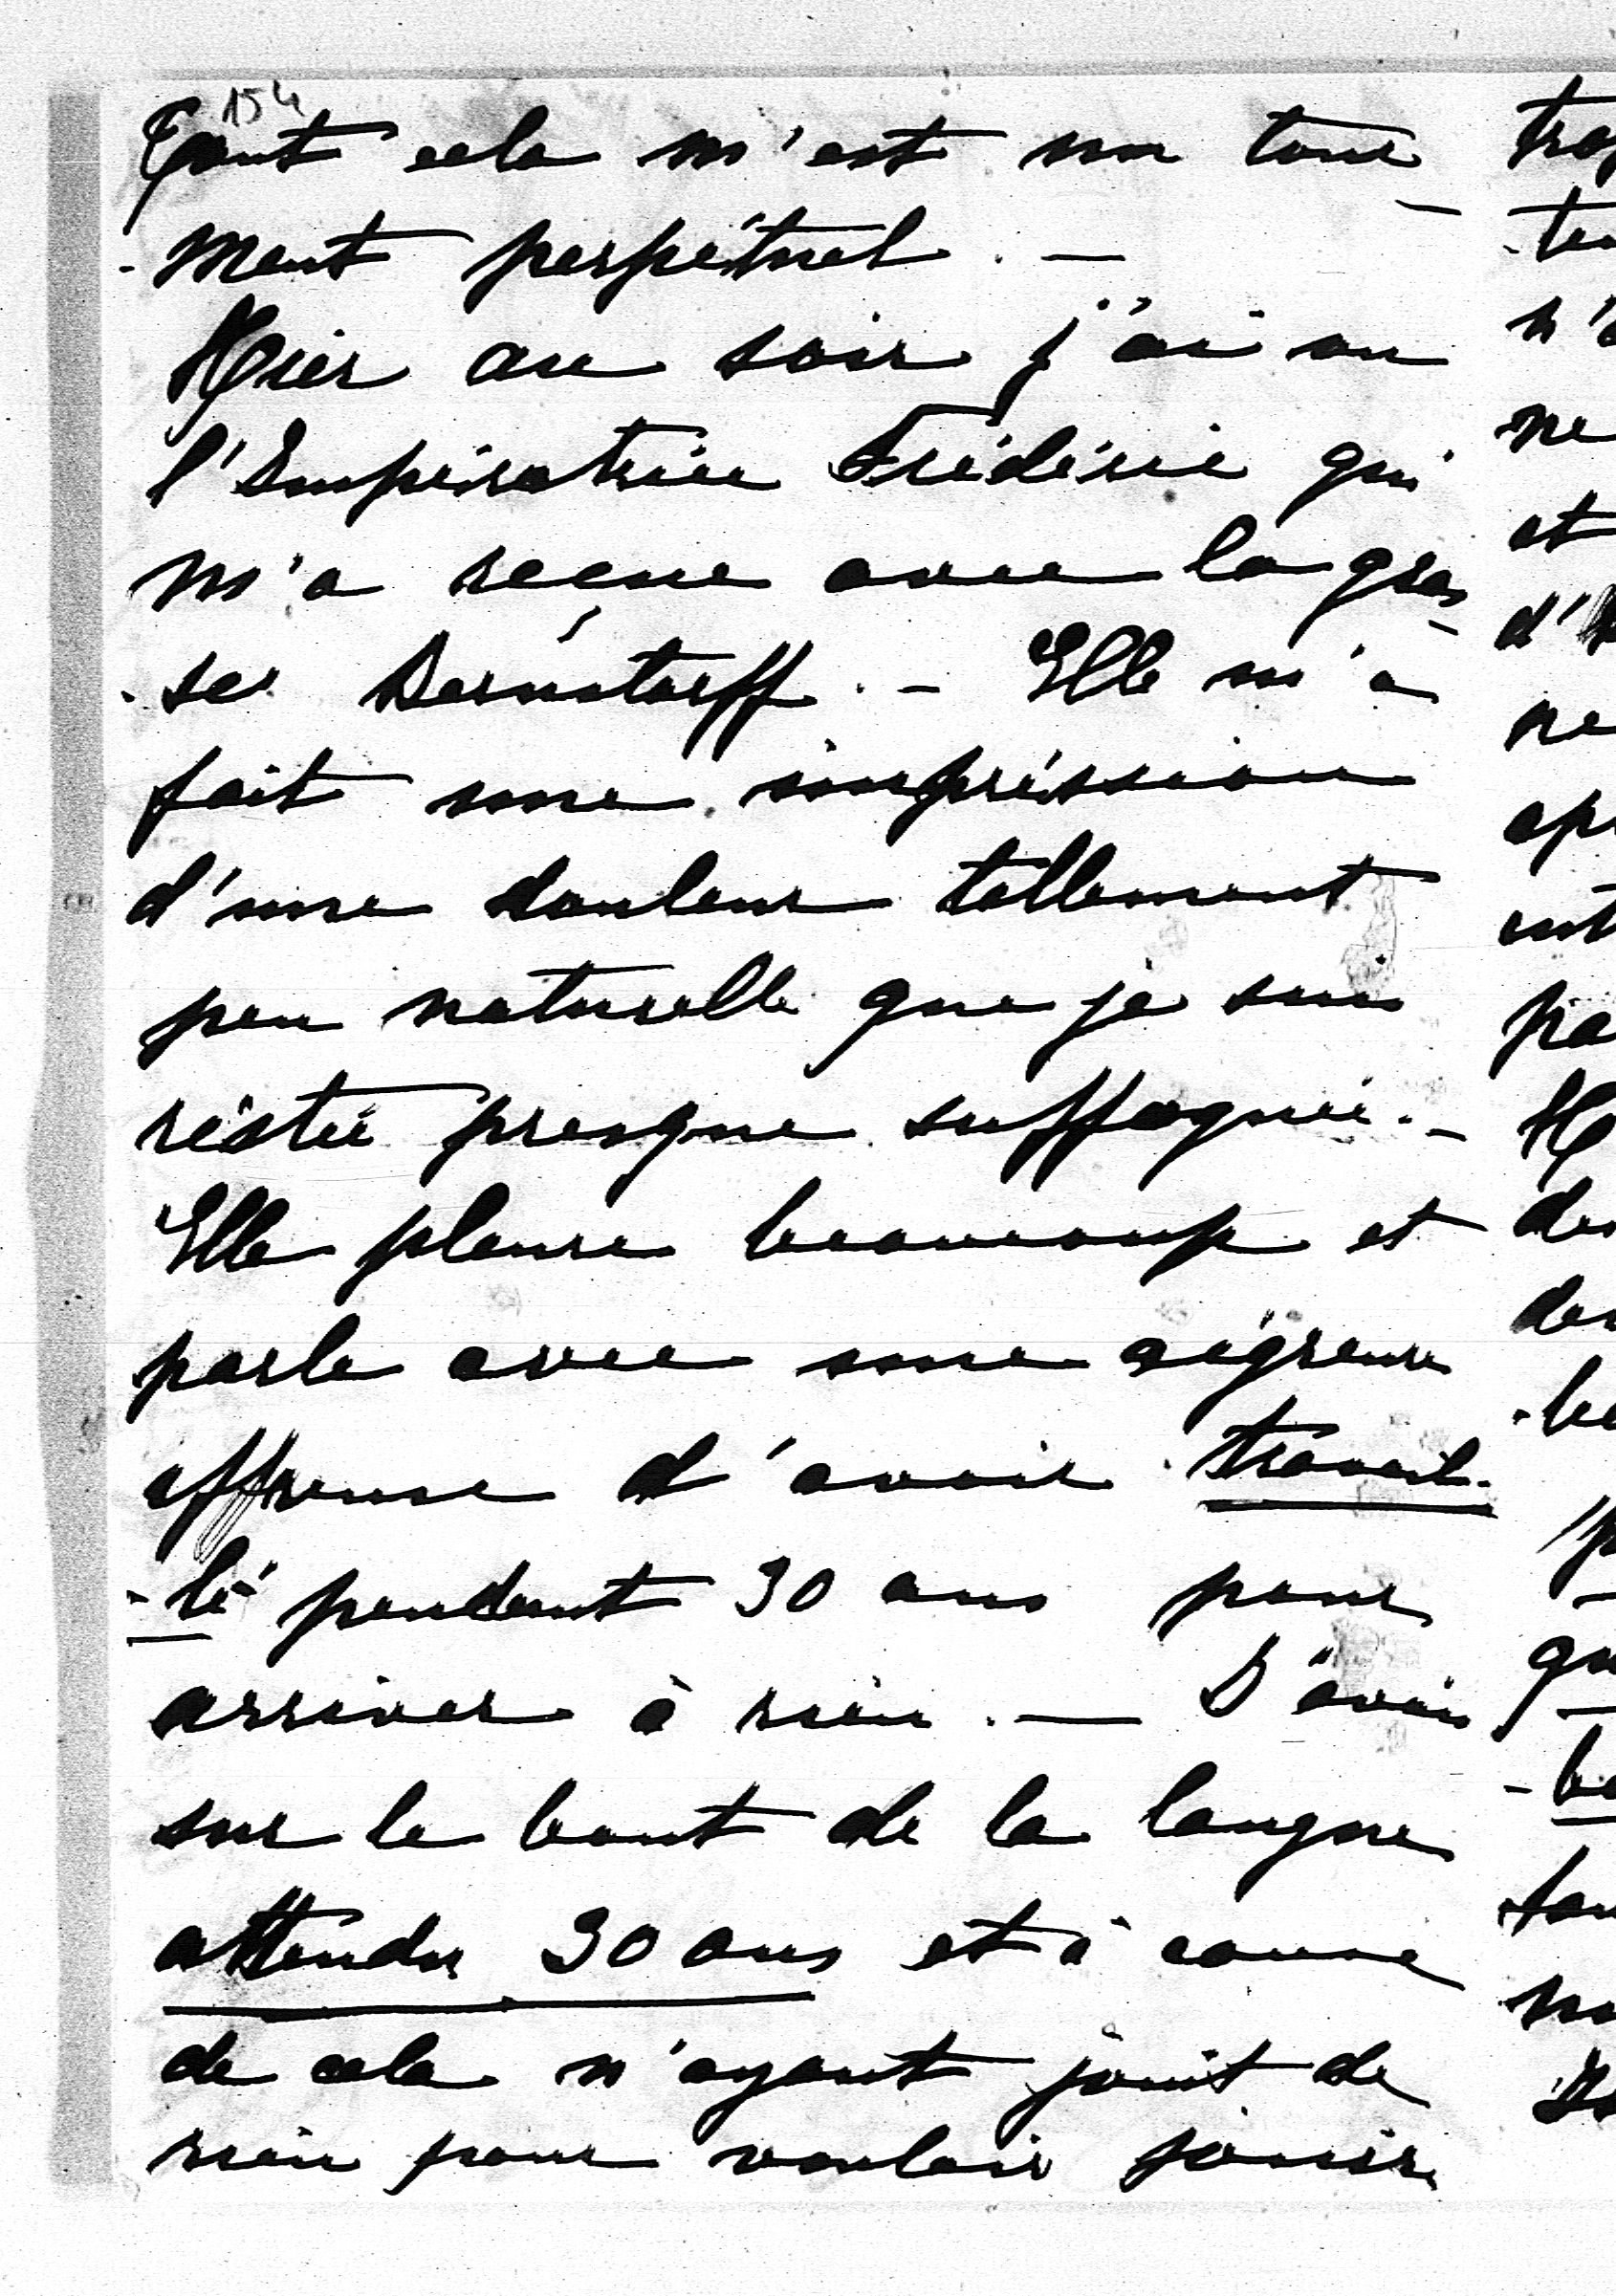 154
Tout cela m'est un tour-
-ment perpétuel. —
Hier au soir j'ai vu
l'Impératrice Frédéric qui
m'a reçue avec la gros-
-se Bernstorff. — Elle m'a
fait une impréssion
d'une douleur tellement
peu naturelle que je suis
réstée presque suffoquée. —
Elle pleure beaucoup et
parle avec une aigreur
affreuse d'avoir travail-
-lé pendant 30 ans pour
arriver à rien. — J'avais
sur le bout de la langue
attendu 30 ans et à cause
de cela n'ayant jouit de
rien pour vouloir jouir